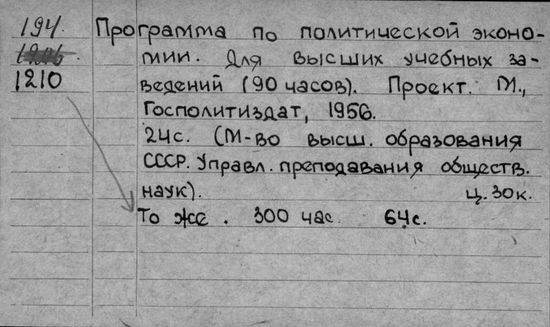 194. Программа по политической эконо-
мии. Для высших учебных за-
1210 ведений (90 часов). Проект. М.,
Госполитиздат, 1956.
24с. (М-во высш. образования
СССР. Управл. преподавания обществ.
наук). ц. 30к.
То же. 300 час. 64с.